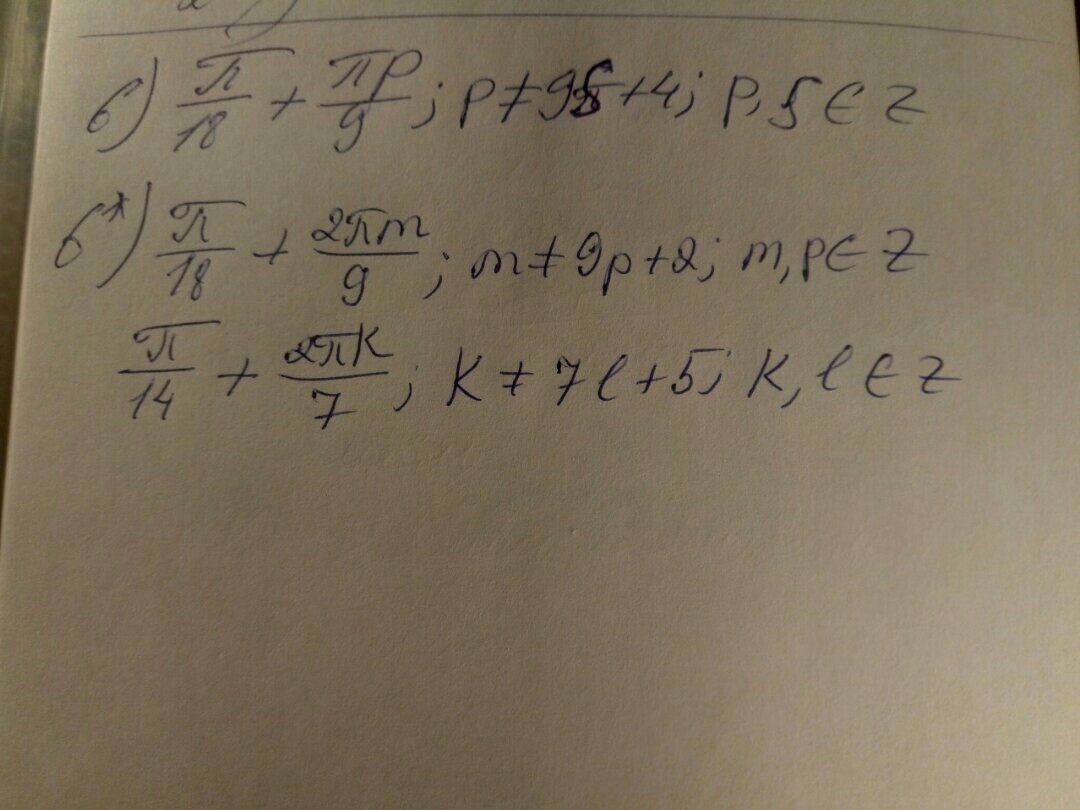 б) π/18 + πp/9; p ≠ 9s + 4; p, s ∈ Z
б*) π/18 + 2πm/9; m ≠ 9p + 2; m, p ∈ Z
π/14 + 2πk/7; k ≠ 7l + 5; k, l ∈ Z